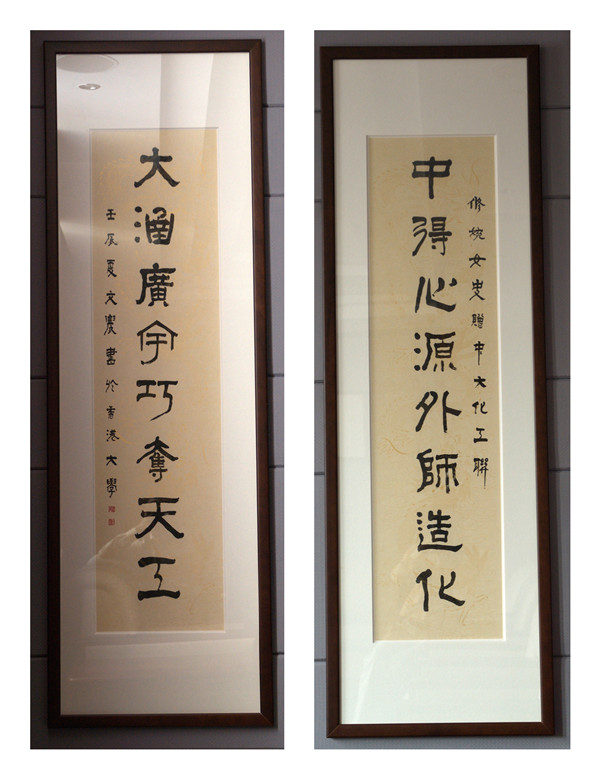 修婉女史贈中大化工聯
中得心源外師造化
大涵廣宇巧奪天工
壬辰夏文農書於香港大學